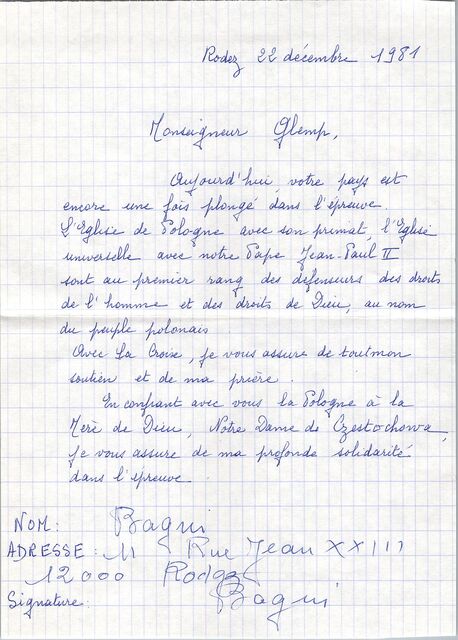 Rodez 22 décembre 1981
Monseigneur Glemp,
Aujourd'hui votre pays est
encore une fois plongé dans l'épreuve.
L'Eglise de Pologne avec son primat, l'Eglise
universelle avec notre Pape Jean-Paul II
sont au premier rang des défenseurs des droits
de l'homme et des droits de Dieu, au nom
du peuple polonais
Avec La Croix, je vous assure de toutmon
soutien et de ma prière.
En confiant avec vous la Pologne à la
Mère de Dieu, Notre Dame de Czestochowa,
je vous assure de ma profonde solidarité
dans l'épreuve
NOM: Bagui
ADRESSE: 11 Rue Jean XXIII
12000 Rodez
Signature: Bagui